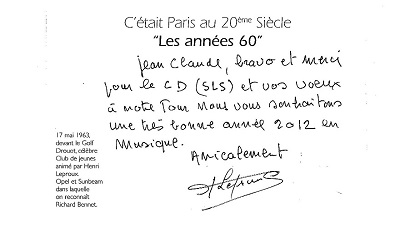 C'était Paris au 20ème Siècle
"Les années 60"
Jean Claude, bravo et merci
pour le CD (SLS) et vos voeux
à notre Tour nous vous souhaitons
une très bonne année 2012 en
Musique.
Amicalement
HLeproux
17 mai 1963,
devant le Golf
Drouot, célèbre
Club de jeunes
animé par Henri
Leproux.
Opel et Sunbeam
dans laquelle
on reconnaît
Richard Bennet.